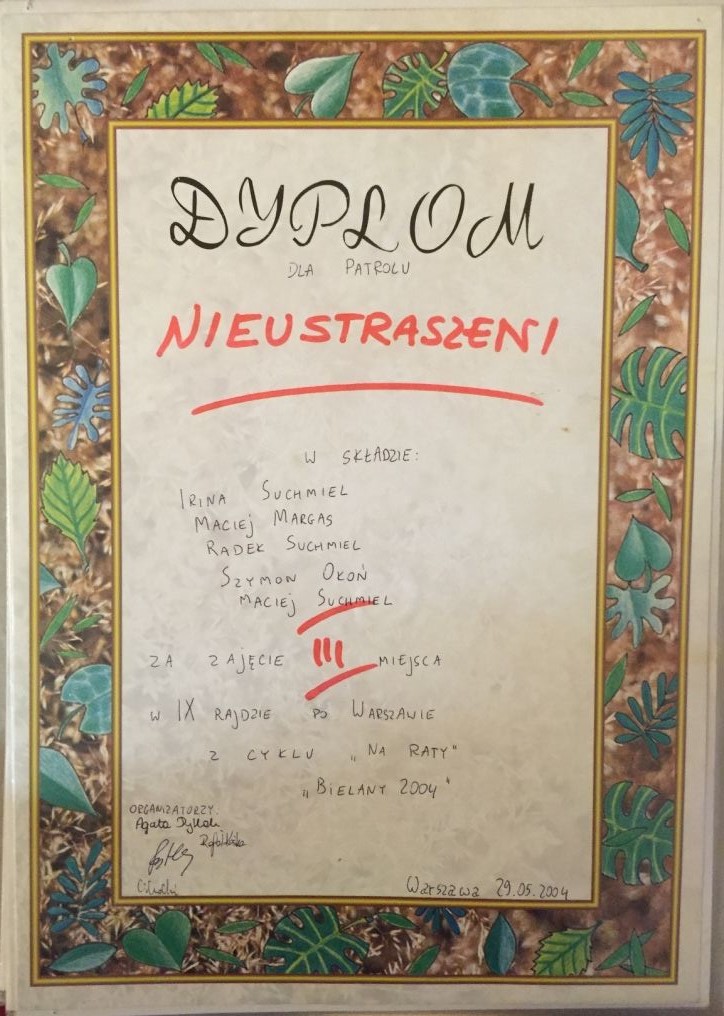 DYPLOM
DLA PATROLU
NIEUSTRASZENI
W SKŁADZIE:
IRINA SUCHMIEL
MACIEJ MARGAS
RADEK SUCHMIEL
SZYMON OKOŃ
MACIEJ SUCHMIEL
ZA ZAJĘCIE III MIEJSCA
W IX RAJDZIE PO WARSZAWIE
Z CYKLU „NA RATY"
„BIELANY 2004"
ORGANIZATORZY:
Agata
Warszawa 29.05.2004